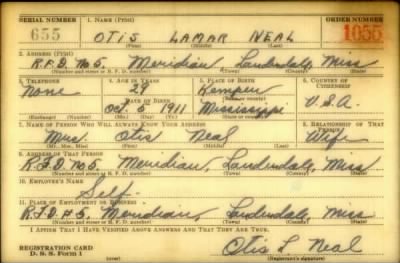 SERIAL NUMBER 1. NAME (Print) ORDER NUMBER
655 OTIS LAMAR NEAL 1055
(First) (Middle) (Last)
2. ADDRESS (Print)
R.F.D. No 5, Meridian, Lauderdale, Miss
(Number and street or R. F. D. number) (Town) (County) (State)
3. TELEPHONE 4. AGE IN YEARS 5. PLACE OF BIRTH 6. COUNTRY OF CITIZENSHIP
None 29 Kemper
DATE OF BIRTH (Town or county)
Oct. 5 1911 Mississippi U.S.A.
(Exchange) (No.) (Mo.) (Day) (Yr.) (State or country)
7. NAME OF PERSON WHO WILL ALWAYS KNOW YOUR ADDRESS 8. RELATIONSHIP OF THAT PERSON
Mrs Otis Neal Wife
(Mr., Mrs., Miss) (First) (Middle) (Last)
9. ADDRESS OF THAT PERSON
R.F.D. No 5 Meridian, Lauderdale, Miss
(Number and street or R. F. D. number) (Town) (County) (State)
10. EMPLOYER'S NAME
Self
11. PLACE OF EMPLOYMENT OR BUSINESS
R.F.D. #5, Meridian, Lauderdale, Miss
(Number and street or R. F. D. number) (Town) (County) (State)
I AFFIRM THAT I HAVE VERIFIED ABOVE ANSWERS AND THAT THEY ARE TRUE.
REGISTRATION CARD
D. S. S. Form 1 Otis L. Neal
(over) (Registrant's signature)